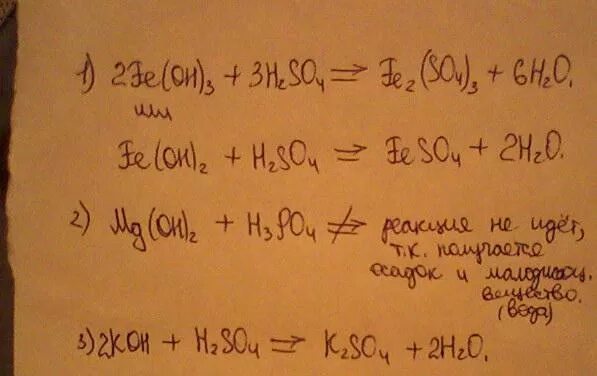 1) 2Fe(OH)₃ + 3H₂SO₄ ⇒ Fe₂(SO₄)₃ + 6H₂O.
или
Fe(OH)₂ + H₂SO₄ ⇒ FeSO₄ + 2H₂O.
2) Mg(OH)₂ + H₃PO₄ ≠> реакция не идёт,
т.к. получается
осадок и малодиссоц.
вещество.
(вода)
3) 2KOH + H₂SO₄ ⇒ K₂SO₄ + 2H₂O.